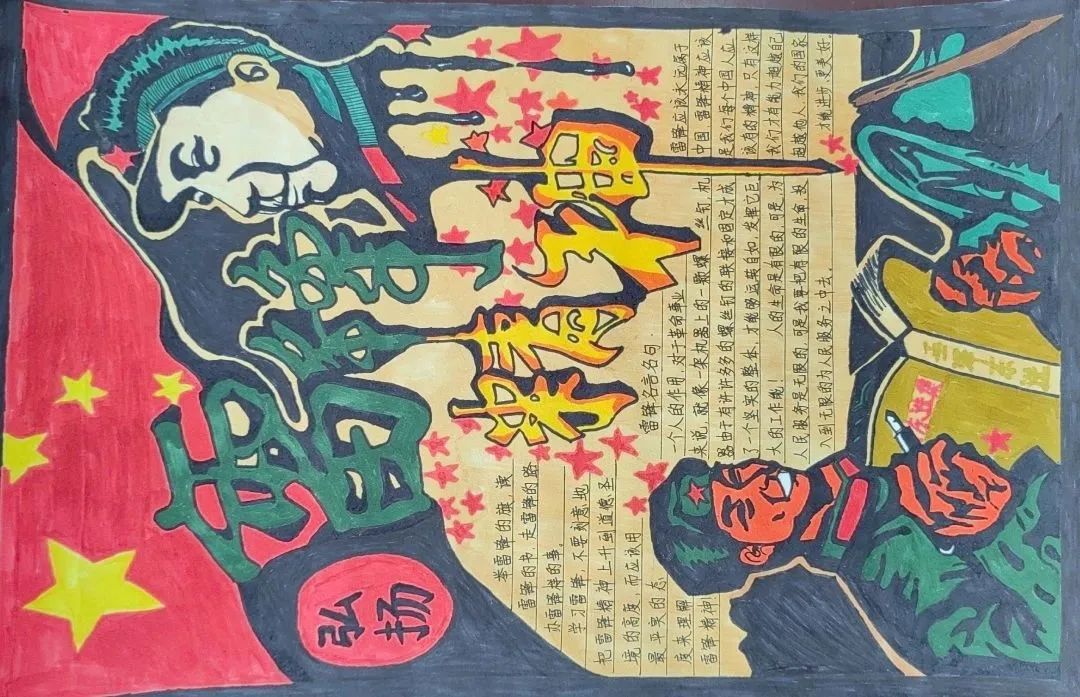 弘扬
雷锋
精神
举雷锋的旗,读
雷锋的书,走雷锋的路
办雷锋样的事。
学习雷锋,不要刻意地
把雷锋精神上升到道德圣
境的高度,而应该用
最平实的态
度来理解
雷锋精神!
雷锋名言名句
一个人的作用,对于革命事业
来说,就像一架机器上的一颗螺丝钉,机
器由于有许许多多的螺丝钉的联接和固定才成
了一个坚实的整体,才能够运转自如,发挥它巨
大的工作能! 人的生命是有限的,可是,为
人民服务是无限的,可是我要把有限的生命,投
入到无限的为人民服务之中去。
雷锋应该永远属于
中国 雷锋精神应该
是我们每个中国人应
该有的精神,只有这样
我们才有能力超越自己
超越他人,我们的国家
才能进步,更美好.